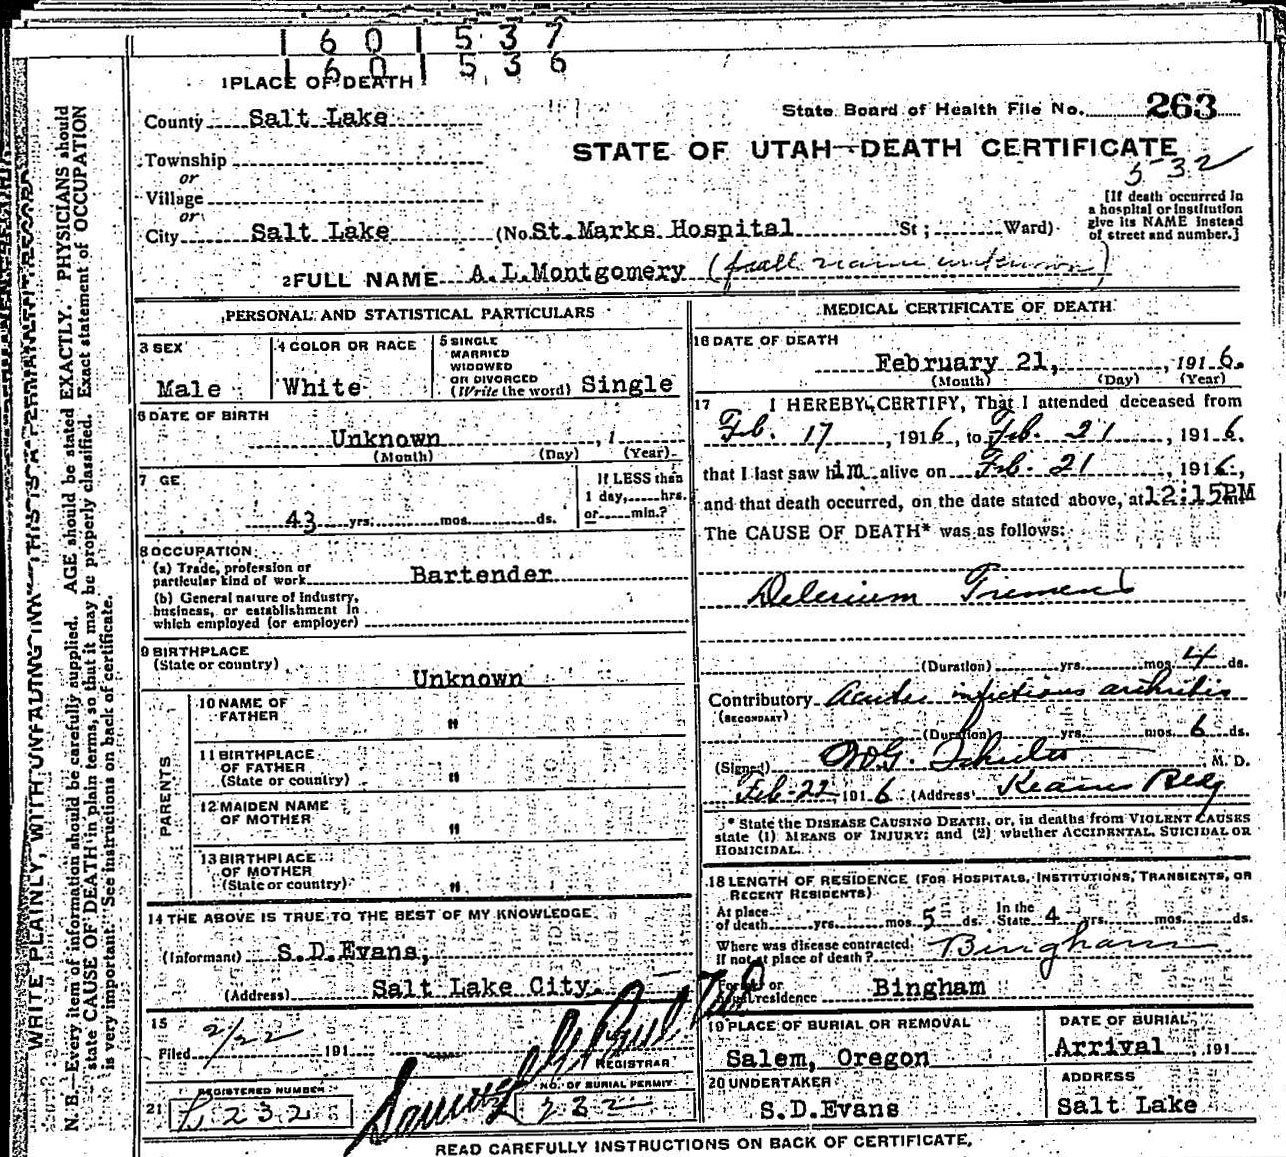 1 6 0 1 5 3 7
1 6 0 1 5 3 6
1 PLACE OF DEATH
County Salt Lake
State Board of Health File No. 263
Township
STATE OF UTAH—DEATH CERTIFICATE
532
or
Village
or
City Salt Lake (No. St. Marks Hospital St; Ward)
[If death occurred in a hospital or institution give its NAME instead of street and number.]
2 FULL NAME A.L.Montgomery (full name unknown)
PERSONAL AND STATISTICAL PARTICULARS
3 SEX
Male
4 COLOR OR RACE
White
5 SINGLE
MARRIED
WIDOWED
OR DIVORCED
(Write the word) Single
6 DATE OF BIRTH
Unknown , 1
(Month) (Day) (Year)
7 GE
43 yrs. mos. ds.
If LESS than
1 day, hrs.
or min.?
8 OCCUPATION
(a) Trade, profession or
particular kind of work Bartender
(b) General nature of Industry,
business, or establishment in
which employed (or employer)
9 BIRTHPLACE
(State or country)
Unknown
PARENTS
10 NAME OF
FATHER "
11 BIRTHPLACE
OF FATHER
(State or country) "
12 MAIDEN NAME
OF MOTHER "
13 BIRTHPLACE
OF MOTHER
(State or country) "
14 THE ABOVE IS TRUE TO THE BEST OF MY KNOWLEDGE
(Informant) S.D.Evans,
(Address) Salt Lake City.
15
Filed 2/22 191
REGISTRAR
21
REGISTERED NUMBER
232
NO. OF BURIAL PERMIT
232
MEDICAL CERTIFICATE OF DEATH
16 DATE OF DEATH
February 21, , 1916.
(Month) (Day) (Year)
17 I HEREBY CERTIFY, That I attended deceased from
Feb. 17 , 1916, to Feb. 21 , 1916.
that I last saw him alive on Feb. 21 , 1916,
and that death occurred, on the date stated above, at 12:15PM
The CAUSE OF DEATH* was as follows:
Delerium Tremens
(Duration) yrs. mos. 4 ds.
Contributory Acute infectious arthritis
(SECONDARY)
(Duration) yrs. mos. 6 ds.
(Signed) M. D.
Feb-22, 1916 (Address) Kearns Bldg
* State the DISEASE CAUSING DEATH, or, in deaths from VIOLENT CAUSES
state (1) MEANS OF INJURY; and (2) whether ACCIDENTAL, SUICIDAL OR
HOMICIDAL.
18 LENGTH OF RESIDENCE (FOR HOSPITALS, INSTITUTIONS, TRANSIENTS, OR
RECENT RESIDENTS)
At place
of death yrs. mos. 5 ds.
In the
State 4 yrs. mos. ds.
Where was disease contracted,
If not at place of death? Bingham
or
residence Bingham
19 PLACE OF BURIAL OR REMOVAL
Salem, Oregon
DATE OF BURIAL
Arrival , 191
20 UNDERTAKER
S.D.Evans
ADDRESS
Salt Lake
READ CAREFULLY INSTRUCTIONS ON BACK OF CERTIFICATE.
WRITE PLAINLY, WITH UNFADING INK—THIS IS A PERMANENT RECORD
N. B.—Every item of information should be carefully supplied. AGE should be stated EXACTLY. PHYSICIANS should
state CAUSE OF DEATH in plain terms, so that it may be properly classified. Exact statement of OCCUPATION
is very important. See instructions on back of certificate.